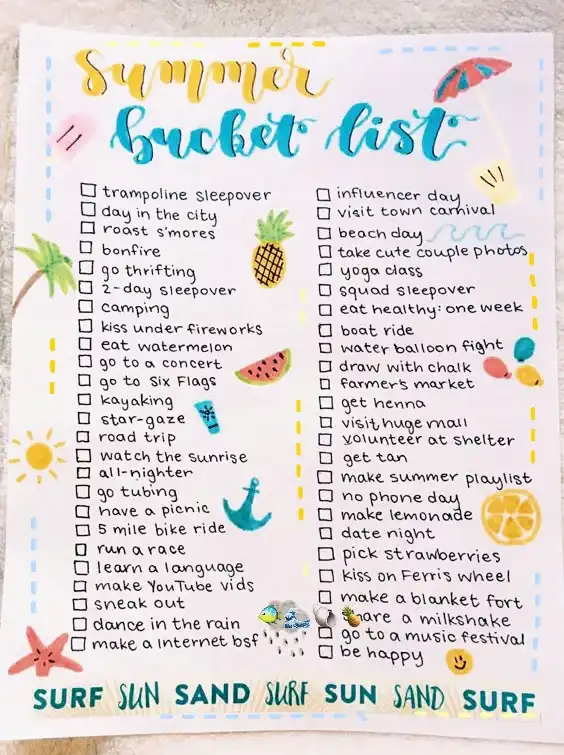 Summer
bucket list
trampoline sleepover
day in the city
roast s'mores
bonfire
go thrifting
2-day sleepover
camping
kiss under fireworks
eat watermelon
go to a concert
go to Six Flags
kayaking
star-gaze
road trip
watch the sunrise
all-nighter
go tubing
have a picnic
5 mile bike ride
run a race
learn a language
make YouTube vids
sneak out
dance in the rain
make a Internet bsf
influencer day
visit town carnival
beach day
take cute couple photos
yoga class
squad sleepover
eat healthy: one week
boat ride
water balloon fight
draw with chalk
farmer's market
get henna
visit huge mall
volunteer at shelter
get tan
make summer playlist
no phone day
make lemonade
date night
pick strawberries
kiss on Ferris wheel
make a blanket fort
hare a milkshake
go to a music festival
be happy
SURF SUN SAND SURF SUN SAND SURF